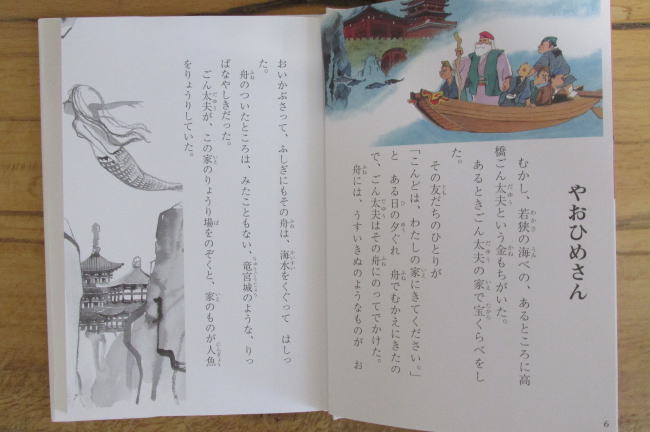 やおひめさん
むかし、若狭の海べの、あるところに高
橋ごん太夫という金もちがいた。
あるときごん太夫の家で宝くらべをし
た。
その友だちのひとりが
「こんどは、わたしの家にきてください。」
と ある日の夕ぐれ 舟でむかえにきたの
で、ごん太夫はその舟にのってでかけた。
舟には、うすいきぬのようなものが お
6
おいかぶさって、ふしぎにもその舟は、海水をくぐって はしっ
た。
舟のついたところは、みたこともない、竜宮城のような、りっ
ぱなやしきだった。
ごん太夫が、この家のりょうり場をのぞくと、家のものが人魚
をりょうりしていた。